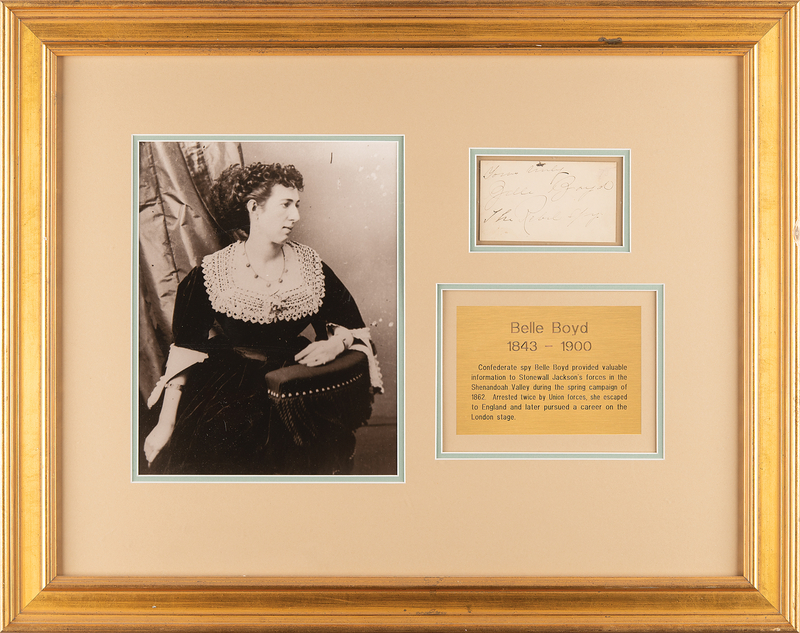 Yours truly
Belle Boyd
The
Belle Boyd
1843 - 1900
Confederate spy Belle Boyd provided valuable
information to Stonewall Jackson's forces in the
Shenandoah Valley during the spring campaign of
1862. Arrested twice by Union forces, she escaped
to England and later pursued a career on the
London stage.